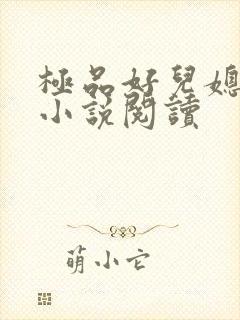 極品好兒媳
小說閱讀
萌小它